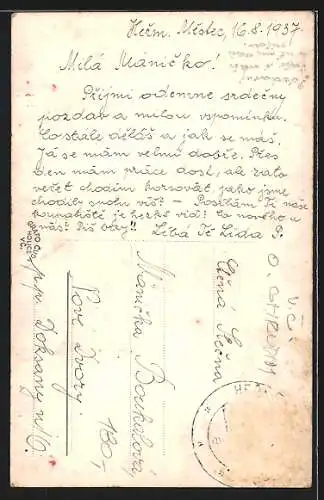 Heřm. Městec, 16.8.1937.
Milá Máničko!
Přijmi odemne srdečný
pozdrav a milou vzpomínku.
Co stále děláš a jak se máš.
Já se mám velmi dobře. Přes
den mám práce dost, ale zato
večer chodím korsovat, jako jsme
chodily spolu viď? - Posílám Ti naše
koupaliště je hezké viď! Co nového u
vás? Piš brzy!! Líbá Tě Lída P.
Ctěná slečna
Mánička
Nové Dvory
180,
p.p. Doksany n/O.